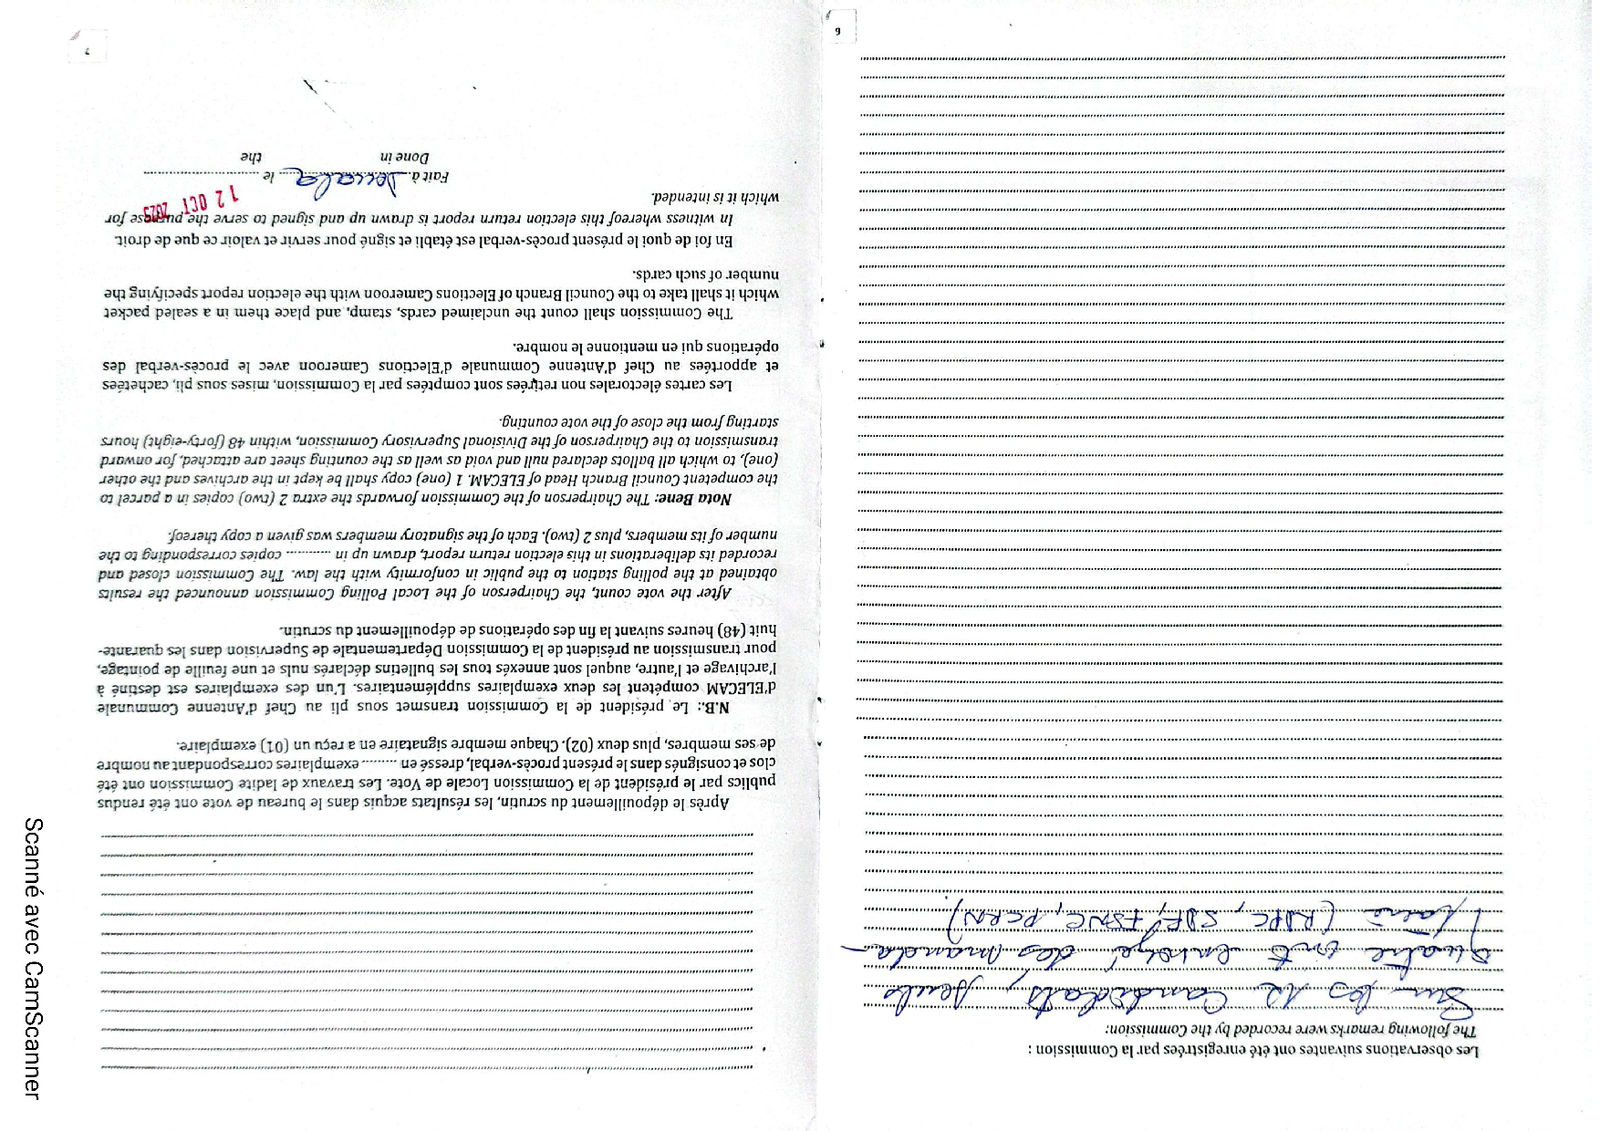 Les observations suivantes ont été enregistrées par la Commission :
The following remarks were recorded by the Commission:
Sur les 12 candidats, seuls
quatre ont envoyé des manda-
taires (RDPC, SDF, FSNC, PCRN).
6
Après le dépouillement du scrutin, les résultats acquis dans le bureau de vote ont été rendus
publics par le président de la Commission Locale de Vote. Les travaux de ladite Commission ont été
clos et consignés dans le présent procès-verbal, dressé en ......... exemplaires correspondant au nombre
de ses membres, plus deux (02). Chaque membre signataire en a reçu un (01) exemplaire.
N.B.: Le président de la Commission transmet sous pli au Chef d'Antenne Communale
d'ELECAM compétent les deux exemplaires supplémentaires. L'un des exemplaires est destiné à
l'archivage et l'autre, auquel sont annexés tous les bulletins déclarés nuls et une feuille de pointage,
pour transmission au président de la Commission Départementale de Supervision dans les quarante-
huit (48) heures suivant la fin des opérations de dépouillement du scrutin.
After the vote count, the Chairperson of the Local Polling Commission announced the results
obtained at the polling station to the public in conformity with the law. The Commission closed and
recorded its deliberations in this election return report, drawn up in ............ copies corresponding to the
number of its members, plus 2 (two). Each of the signatory members was given a copy thereof.
Nota Bene: The Chairperson of the Commission forwards the extra 2 (two) copies in a parcel to
the competent Council Branch Head of ELECAM. 1 (one) copy shall be kept in the archives and the other
(one), to which all ballots declared null and void as well as the counting sheet are attached, for onward
transmission to the Chairperson of the Divisional Supervisory Commission, within 48 (forty-eight) hours
starting from the close of the vote counting.
Les cartes électorales non retirées sont comptées par la Commission, mises sous pli, cachetées
et apportées au Chef d'Antenne Communale d'Elections Cameroon avec le procès-verbal des
opérations qui en mentionne le nombre.
The Commission shall count the unclaimed cards, stamp, and place them in a sealed packet
which it shall take to the Council Branch of Elections Cameroon with the election report specifying the
number of such cards.
En foi de quoi le présent procès-verbal est établi et signé pour servir et valoir ce que de droit.
In witness whereof this election return report is drawn up and signed to serve the purpose for
which it is intended.
12 OCT 2025
Fait à Douala le
Done in the
7
Scanné avec CamScanner